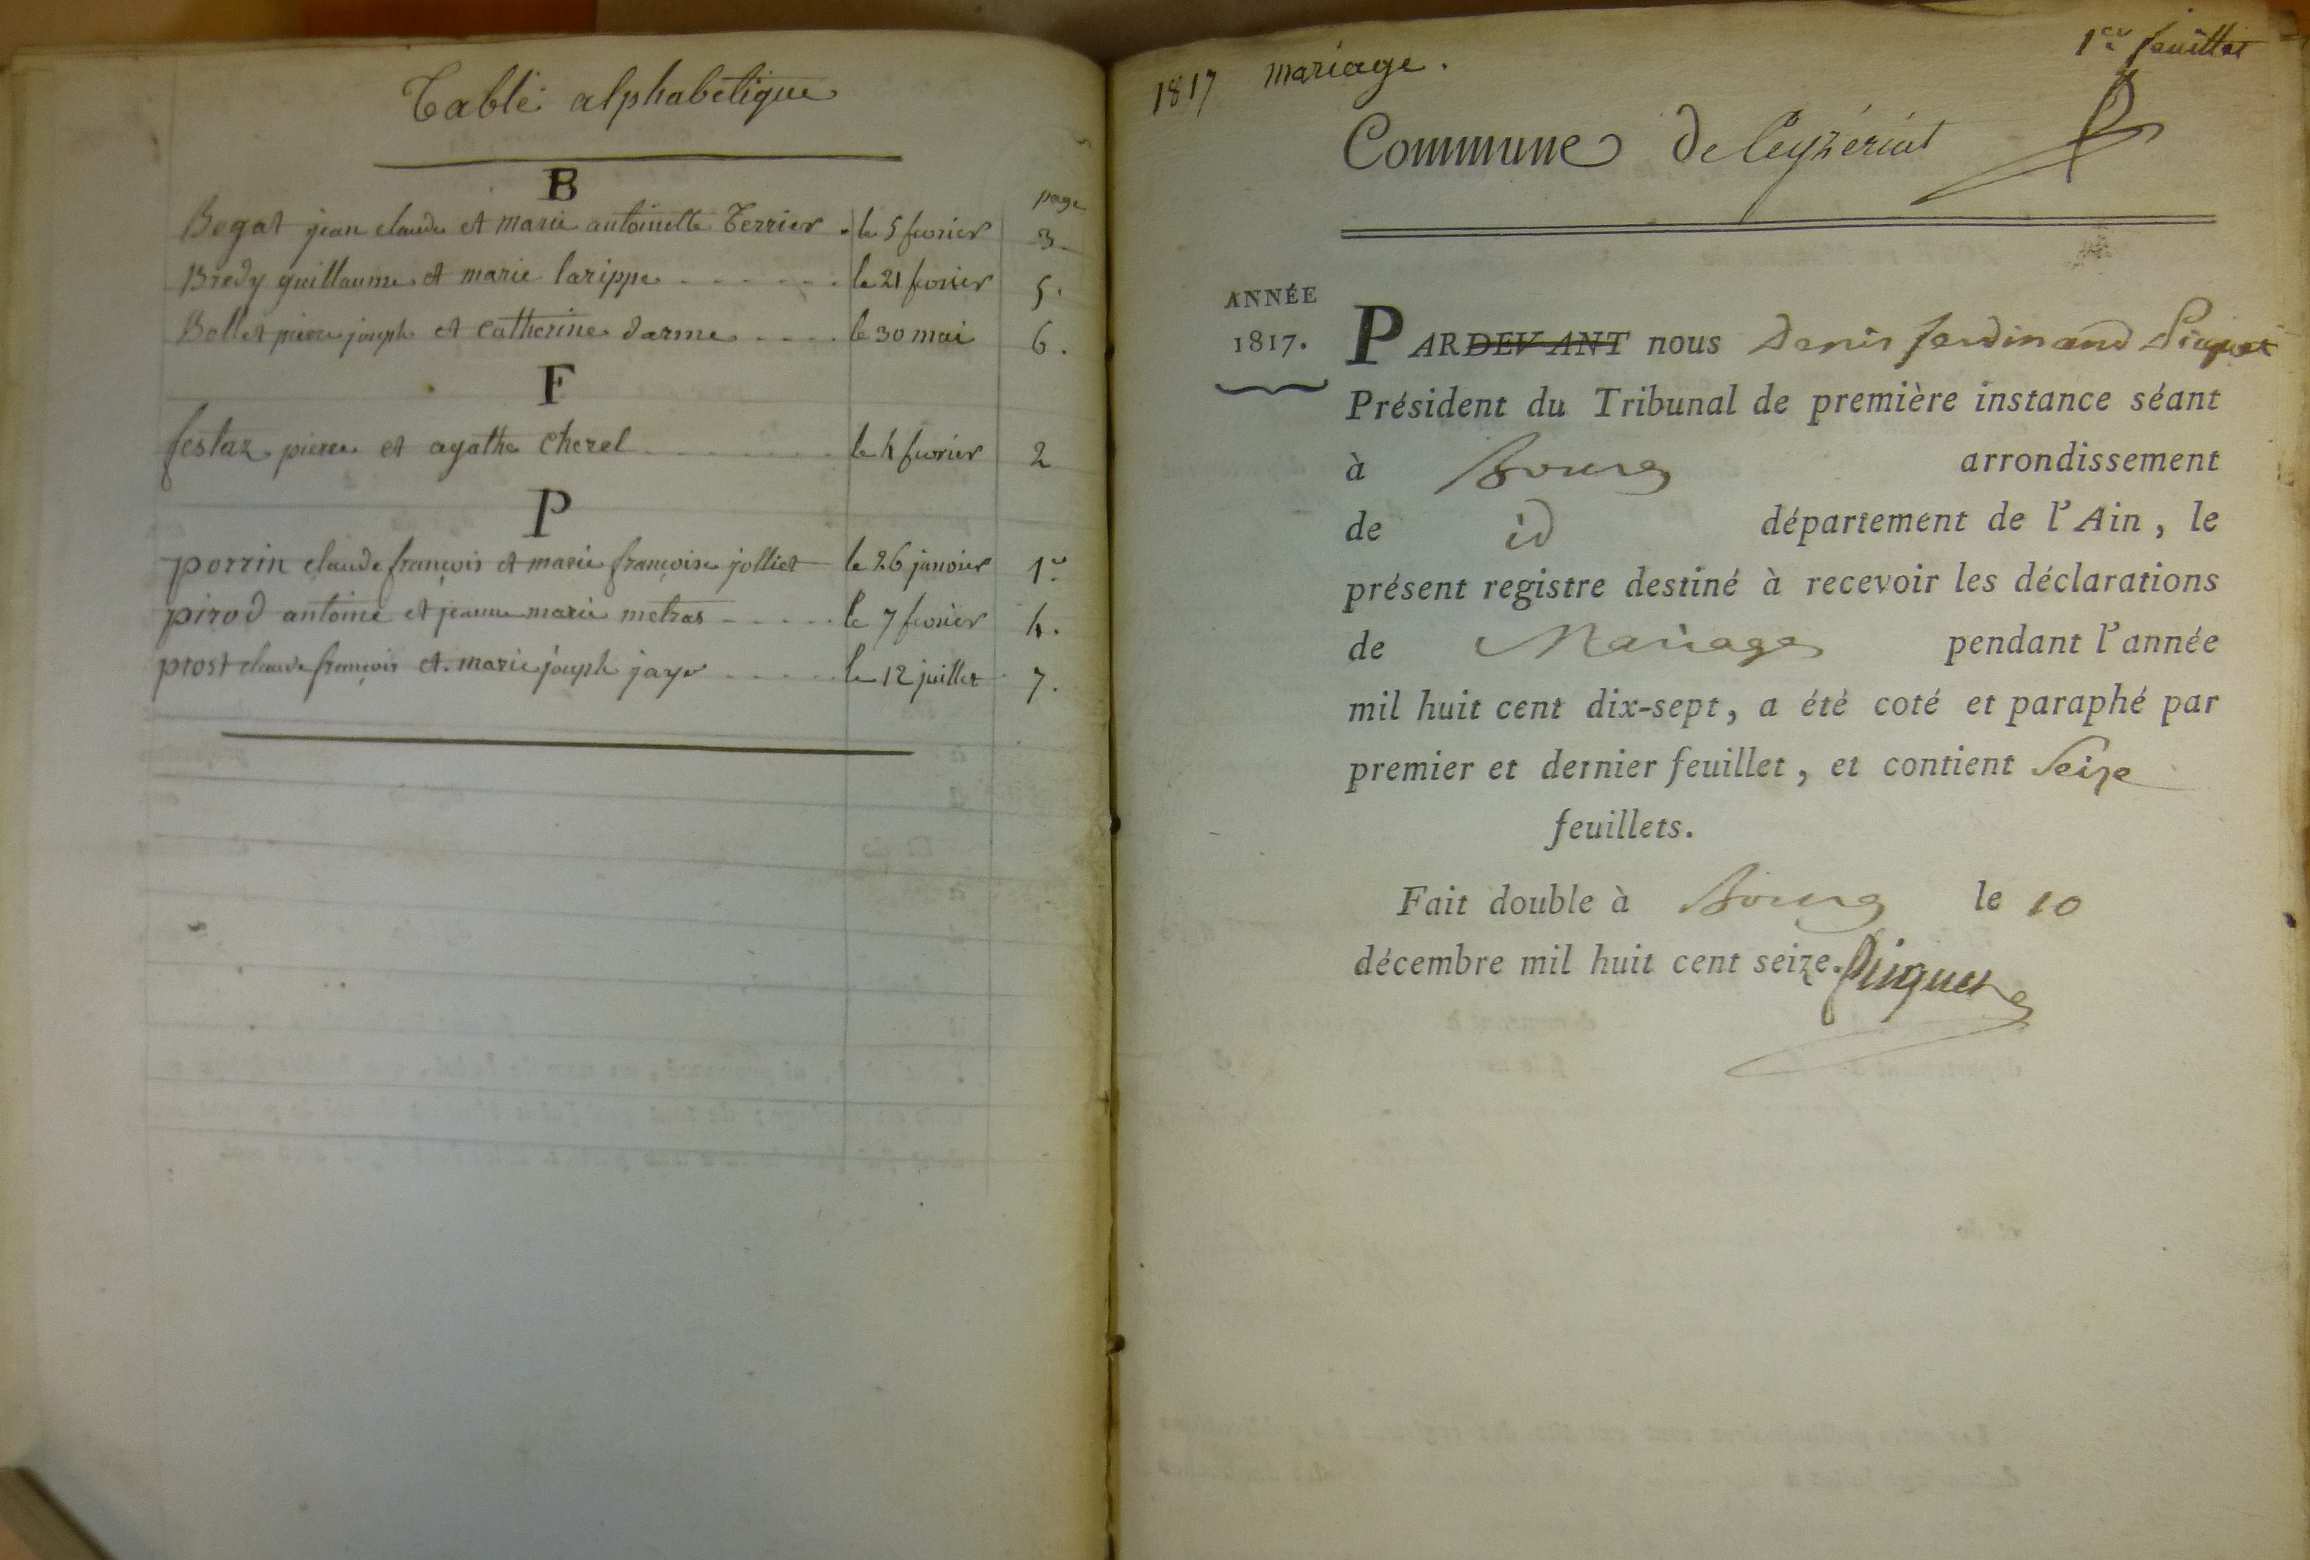 Table alphabetique
B
page
Bogat jean claude et marie antoinette Terrier . le 5 fevrier 3
Bredy guillaume et marie larippe . . . . . . le 21 fevrier 5.
Bollet pierre joseph et Catherine darme . . . . le 30 mai 6.
F
festaz pierre et agathe Cherel le 4 fevrier 2
P
perrin claude françois et marie françoise jolliet le 26 janvier 1er
pirod antoine et jeanne marie metras . . . . . le 7 fevrier 4.
prost claude françois et marie joseph jayr . . . . . le 12 juillet 7.
1817 mariage.
1er feuillet
Commune De Ceyzériat
ANNÉE
1817.
PARDEVANT nous Denis ferdinand Picquet
Président du Tribunal de première instance séant
à Bourg arrondissement
de id département de l'Ain, le
présent registre destiné à recevoir les déclarations
de Mariage pendant l'année
mil huit cent dix-sept, a été coté et paraphé par
premier et dernier feuillet, et contient Seize
feuillets.
Fait double à Bourg le 10
décembre mil huit cent seize. Picquet